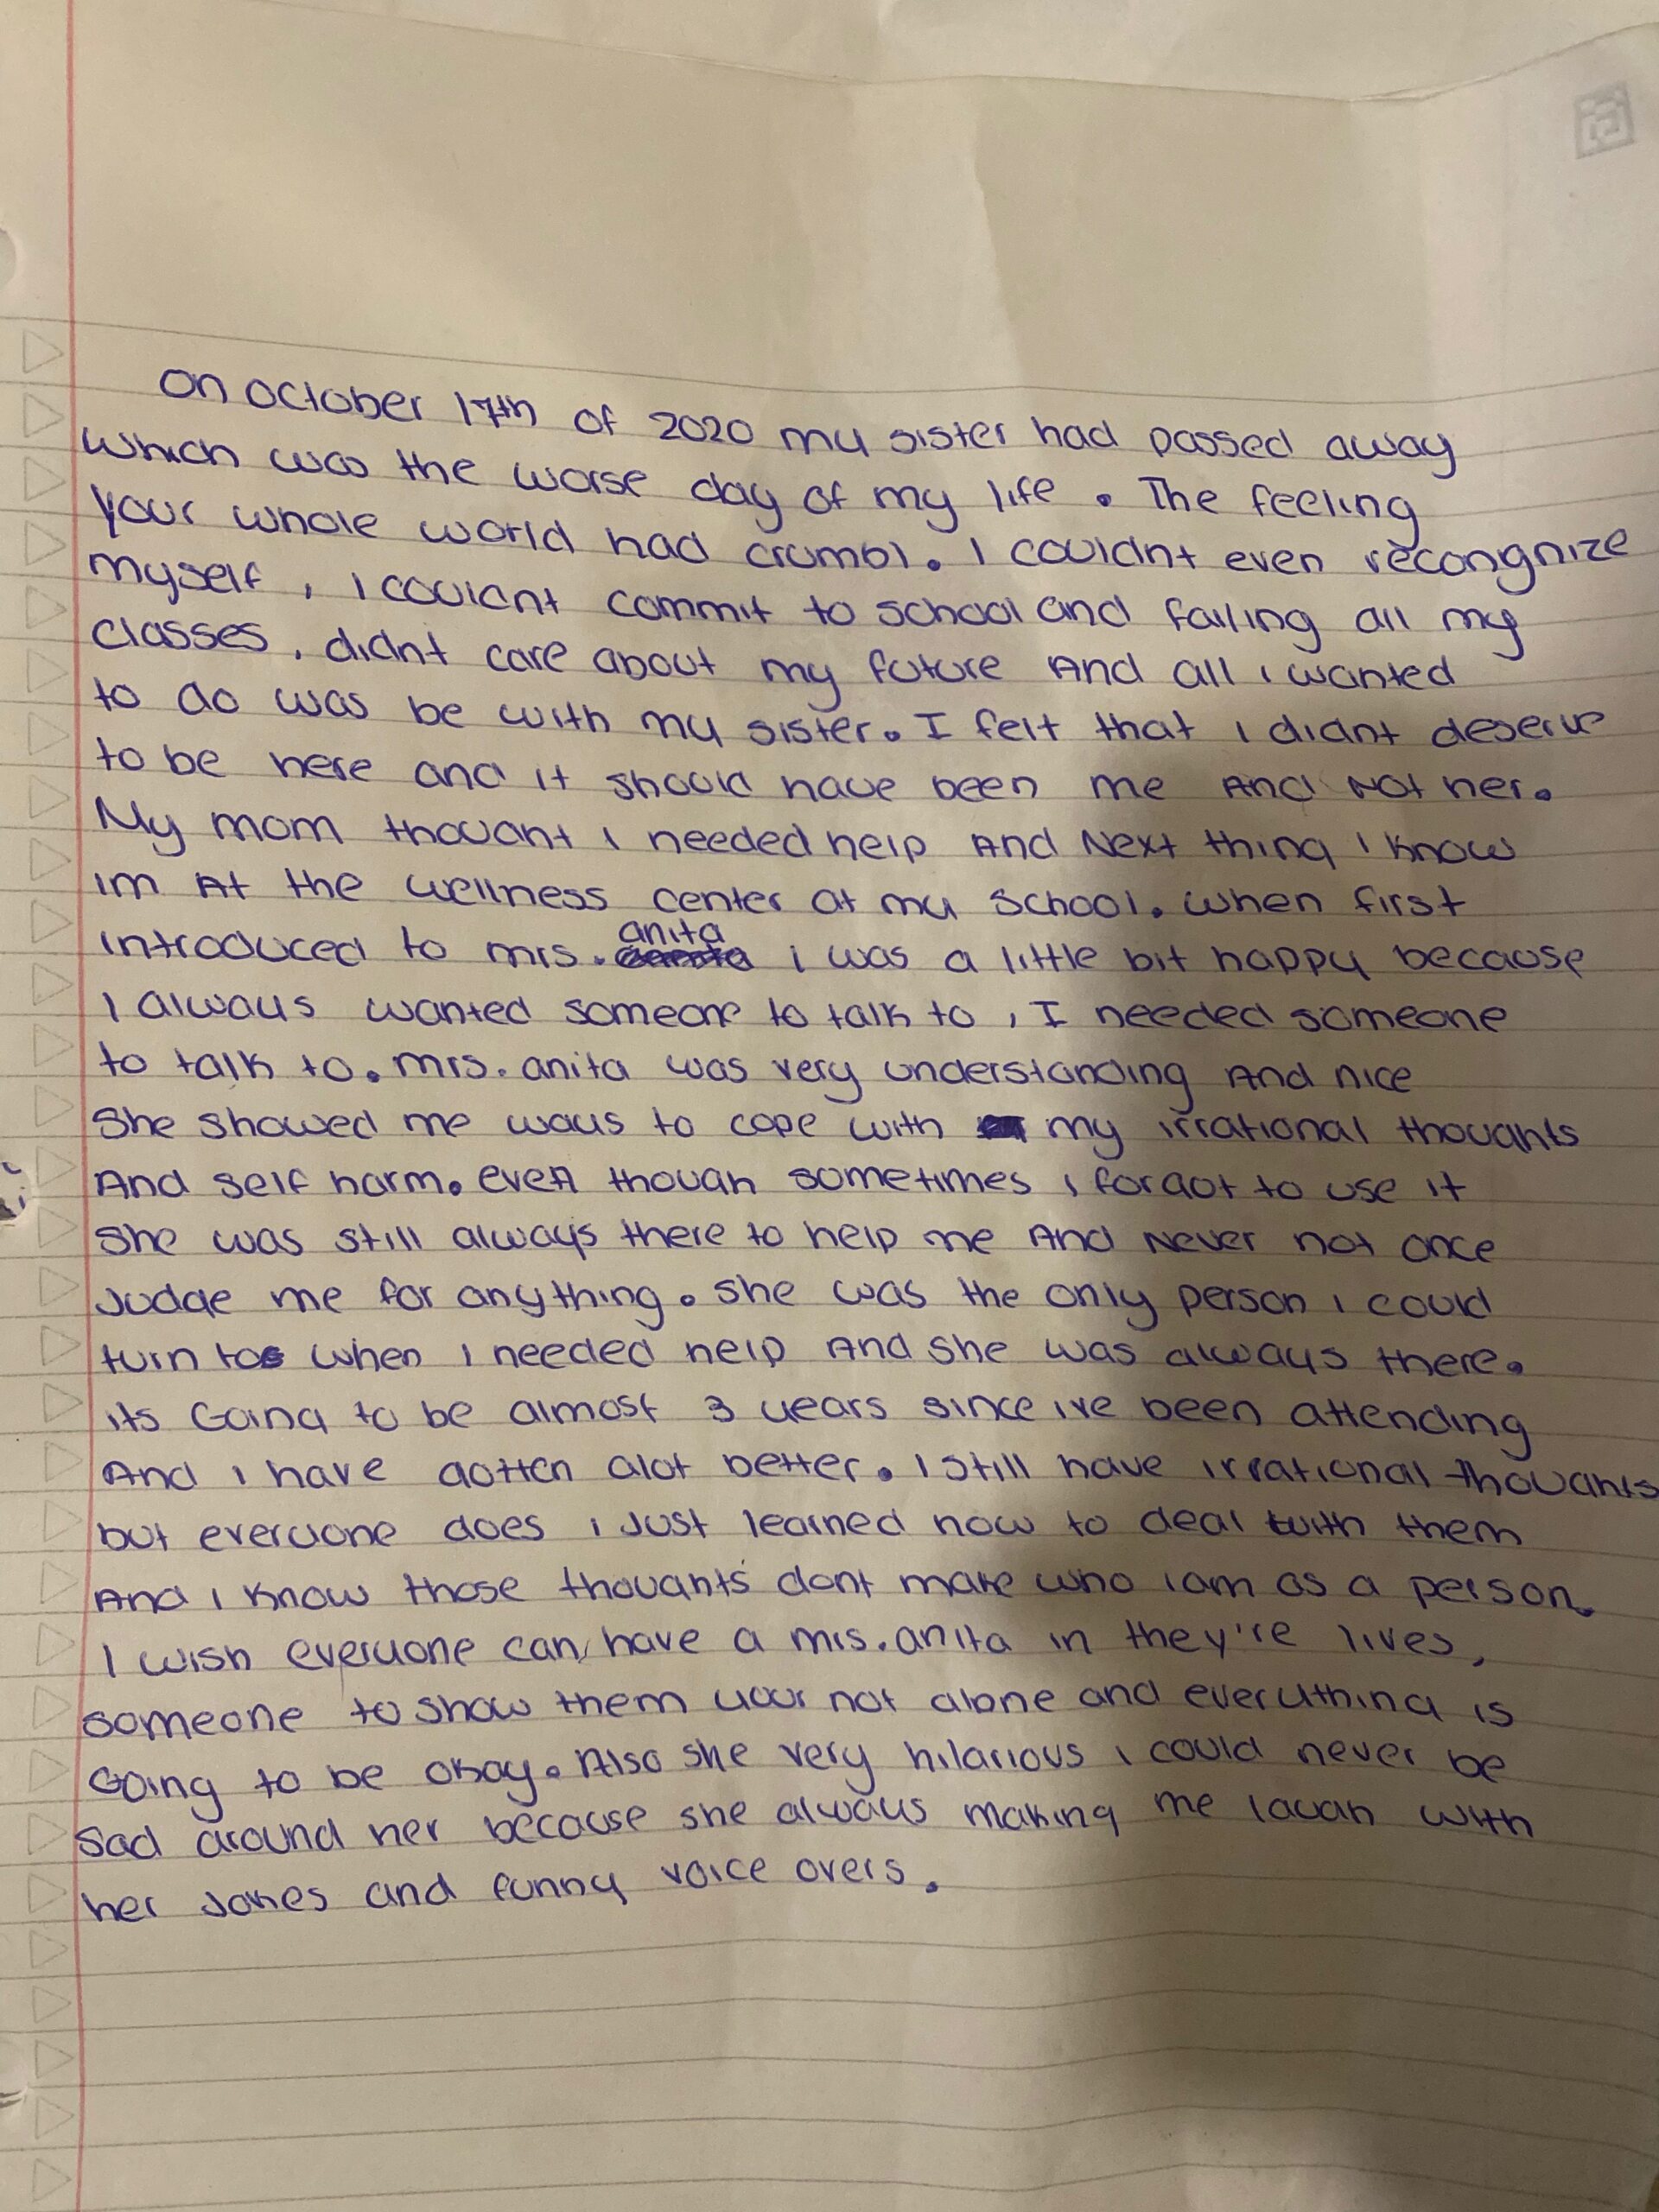 On October 17th of 2020 my sister had passed away
which was the worse day of my life. The feeling
your whole world had crumbl. I couldnt even recongnize
myself, I couldnt commit to school and failing all my
classes, didnt care about my future And all i wanted
to do was be with my sister. I felt that i didnt deserve
to be here and it should have been me And Not her.
My mom thought I needed help And Next thing I know
im At the wellness center at my school. When first
introduced to mrs. anita i was a little bit happy because
I always wanted someone to talk to, I needed someone
to talk to. mrs. anita was very understanding And nice
She showed me ways to cope with my irrational thoughts
And self harm. even though sometimes i forgot to use it
She was still always there to help me And Never not once
Judge me for anything. She was the only person i could
turn to when I needed help And She was always there.
its Going to be almost 3 years since ive been attending
And i have gotten alot better. I still have irrational thoughts
but everyone does i Just learned how to deal with them
And i know those thoughts dont make who iam as a person.
I wish everyone can have a mrs. anita in they're lives,
someone to show them your not alone and everything is
Going to be okay. Also she very hilarious i could never be
Sad around her because she always making me laugh with
her Jokes and funny voice overs.